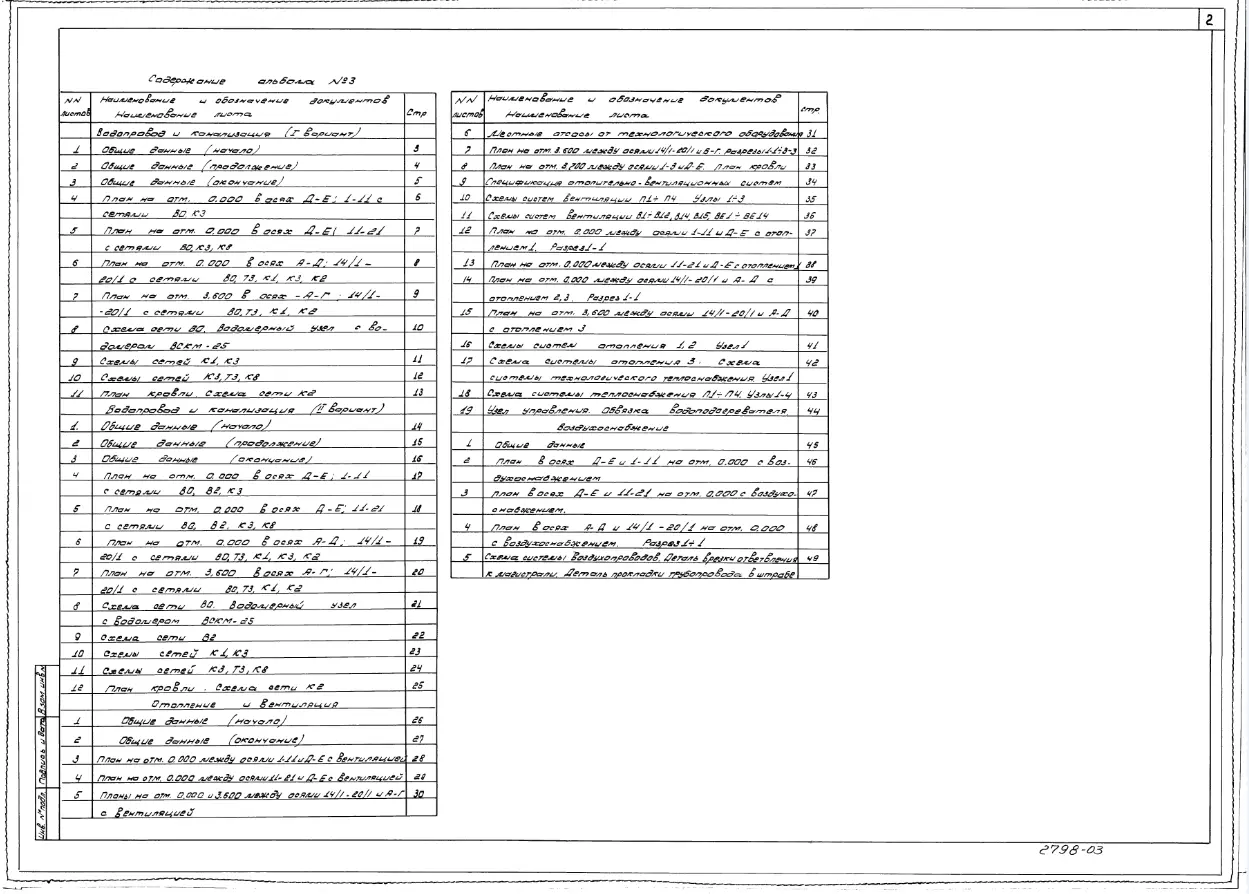 2
Содержание альбома №3
NN листов
Наименование и обозначение документов
Наименование листа
Стр
Водопровод и канализация (I вариант)
1 Общие данные (начало) 3
2 Общие данные (продолжение) 4
3 Общие данные (окончание) 5
4 План на отм. 0.000 в осях Д-Е; 1-11 с 6
сетями В0, К3
5 План на отм. 0.000 в осях Д-Е; 11-21 7
с сетями В0, К3, К8
6 План на отм. 0.000 в осях А-Д; 14/1- 8
20/1 с сетями В0, Т3, К1, К3, К2
7 План на отм. 3,600 в осях -А-Г ; 14/1- 9
-20/1 с сетями В0, Т3, К1, К2
8 Схема сети В0. Водомерный узел с во- 10
домером ВСКМ-25
9 Схемы сетей К1, К3 11
10 Схемы сетей К3, Т3, К8 12
11 План кровли. Схема сети К2 13
Водопровод и канализация (II вариант)
1. Общие данные (начало) 14
2 Общие данные (продолжение) 15
3 Общие данные (окончание) 16
4 План на отм. 0.000 в осях Д-Е; 1-11 17
с сетями В0, В2, К3
5 План на отм. 0.000 в осях Д-Е; 11-21 18
с сетями В0, В2, К3, К8
6 План на отм. 0.000 в осях А-Д; 14/1- 19
20/1 с сетями В0, Т3, К1, К3, К2
7 План на отм. 3,600 в осях А-Г; 14/1- 20
20/1 с сетями В0, Т3, К1, К2
8 Схема сети В0. Водомерный узел 21
с водомером ВСКМ-25
9 Схема сети В2 22
10 Схемы сетей К1, К3 23
11 Схемы сетей К3, Т3, К8 24
12 План кровли. Схема сети К2 25
Отопление и вентиляция
1 Общие данные (начало) 26
2 Общие данные (окончание) 27
3 План на отм. 0.000 между осями 1-11 и Д-Е с вентиляцией 28
4 План на отм. 0.000 между осями 11-21 и Д-Е с вентиляцией 29
5 Планы на отм. 0,000 и 3.600 между осями 14/1-20/1 и А-Г 30
с вентиляцией
NN листов
Наименование и обозначение документов
Наименование листа
стр.
6 Местные отсосы от технологического оборудования 31
7 План на отм. 3.600 между осями 14/1-20/1 и Б-Г. Разрезы 1-1÷3-3 32
8 План на отм. 3,700 между осями 1-3 и Д-Е. План кровли 33
9 Спецификация отопительно-вентиляционных систем 34
10 Схемы систем вентиляции П1÷П4 Узлы 1÷3 35
11 Схемы систем вентиляции В1÷В12, В14, В15, ВЕ1÷ВЕ14 36
12 План на отм. 0.000 между осями 1-11 и Д-Е с отоп- 37
лением 1. Разрез 1-1
13 План на отм. 0.000 между осями 11-21 и Д-Е с отоплением 1 38
14 План на отм. 0.000 между осями 14/1-20/1 и А-Д с 39
отоплением 2,3. Разрез 1-1
15 План на отм. 3,600 между осями 14/1-20/1 и А-Д 40
с отоплением 3
16 Схемы систем отопления 1, 2 Узел 1 41
17 Схема системы отопления 3. Схема 42
системы технологического теплоснабжения. Узел 1
18 Схема системы теплоснабжения П1÷П4. Узлы 1-4 43
19 Узел управления. Обвязка водоподогревателя 44
Воздухоснабжение
1 Общие данные 45
2 План в осях Д-Е и 1-11 на отм. 0.000 с воз- 46
духоснабжением
3 План в осях Д-Е и 11-21 на отм. 0,000 с воздухо- 47
снабжением.
4 План в осях А-Д и 14/1-20/1 на отм. 0.000 48
с воздухоснабжением. Разрез 1÷1
5 Схема системы воздухопроводов. Деталь врезки ответвления 49
к магистрали. Деталь прокладки трубопровода в штрабе
Взам. инв. N
Подпись и дата
Инв. N подл.
2798-03